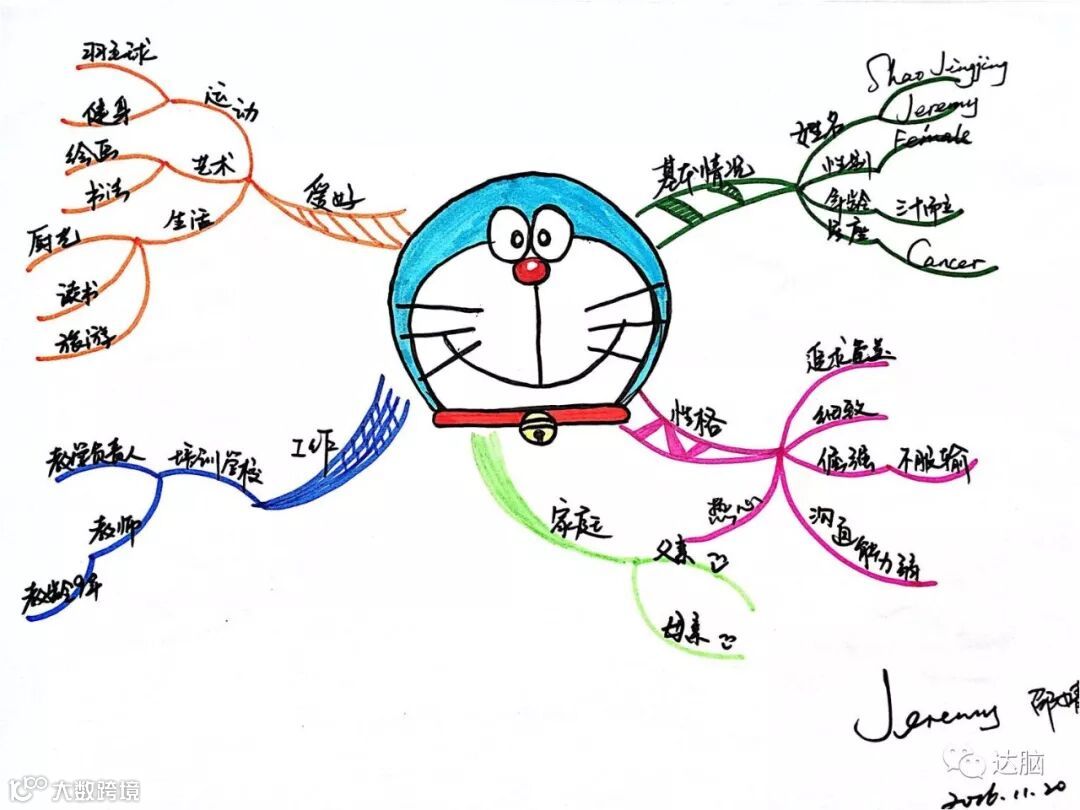 基本情况
姓名
Shao Jingjing
Jeremy
性别
Female
年龄
三十而立
星座
Cancer
性格
追求完美
细致
倔强
不服输
沟通能力强
热心
家庭
父亲
母亲
工作
培训学校
教学负责人
教师
教龄9年
爱好
运动
羽毛球
健身
艺术
绘画
书法
生活
厨艺
读书
旅游
Jeremy 邵婧
2016.11.20
达脑
大数跨境